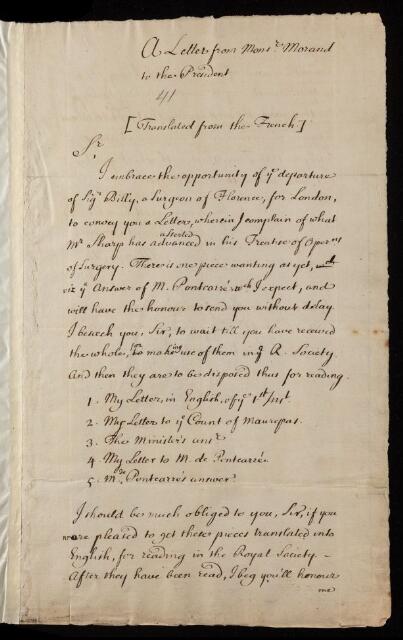 A Letter from Monsr. Morand
to the President
41
[Translated from the French.]
Sr.
I embrace the opportunity of ye departure
of Sigr. Billy, a Surgeon of Florence, for London,
to convey you a Letter, wherein I complain of what
asserted
Mr. Sharp has advanced in his Treatise of Operns
of Surgery. There is one piece wanting as yet,
viz ye Answer of M. Pontcarré wch I expect, and
will have the honour to send you without delay.
I beseech you, Sir, to wait till you have received
the whole, to making use of them in ye R. Society.
And then they are to be disposed thus for reading.
1. My Letter, in English, of ye 1st Inst.
2. My Letter to ye Count of Maurepas.
3. The Minister's ansr.
4. My Letter to M. de Pontcarré
5. M. de Pontcarré's answer.
I should be much obliged to you, Sir, if you
were pleased to get these pieces translated into
English, for reading in the Royal Society -
After they have been read, I beg you'll honour
me